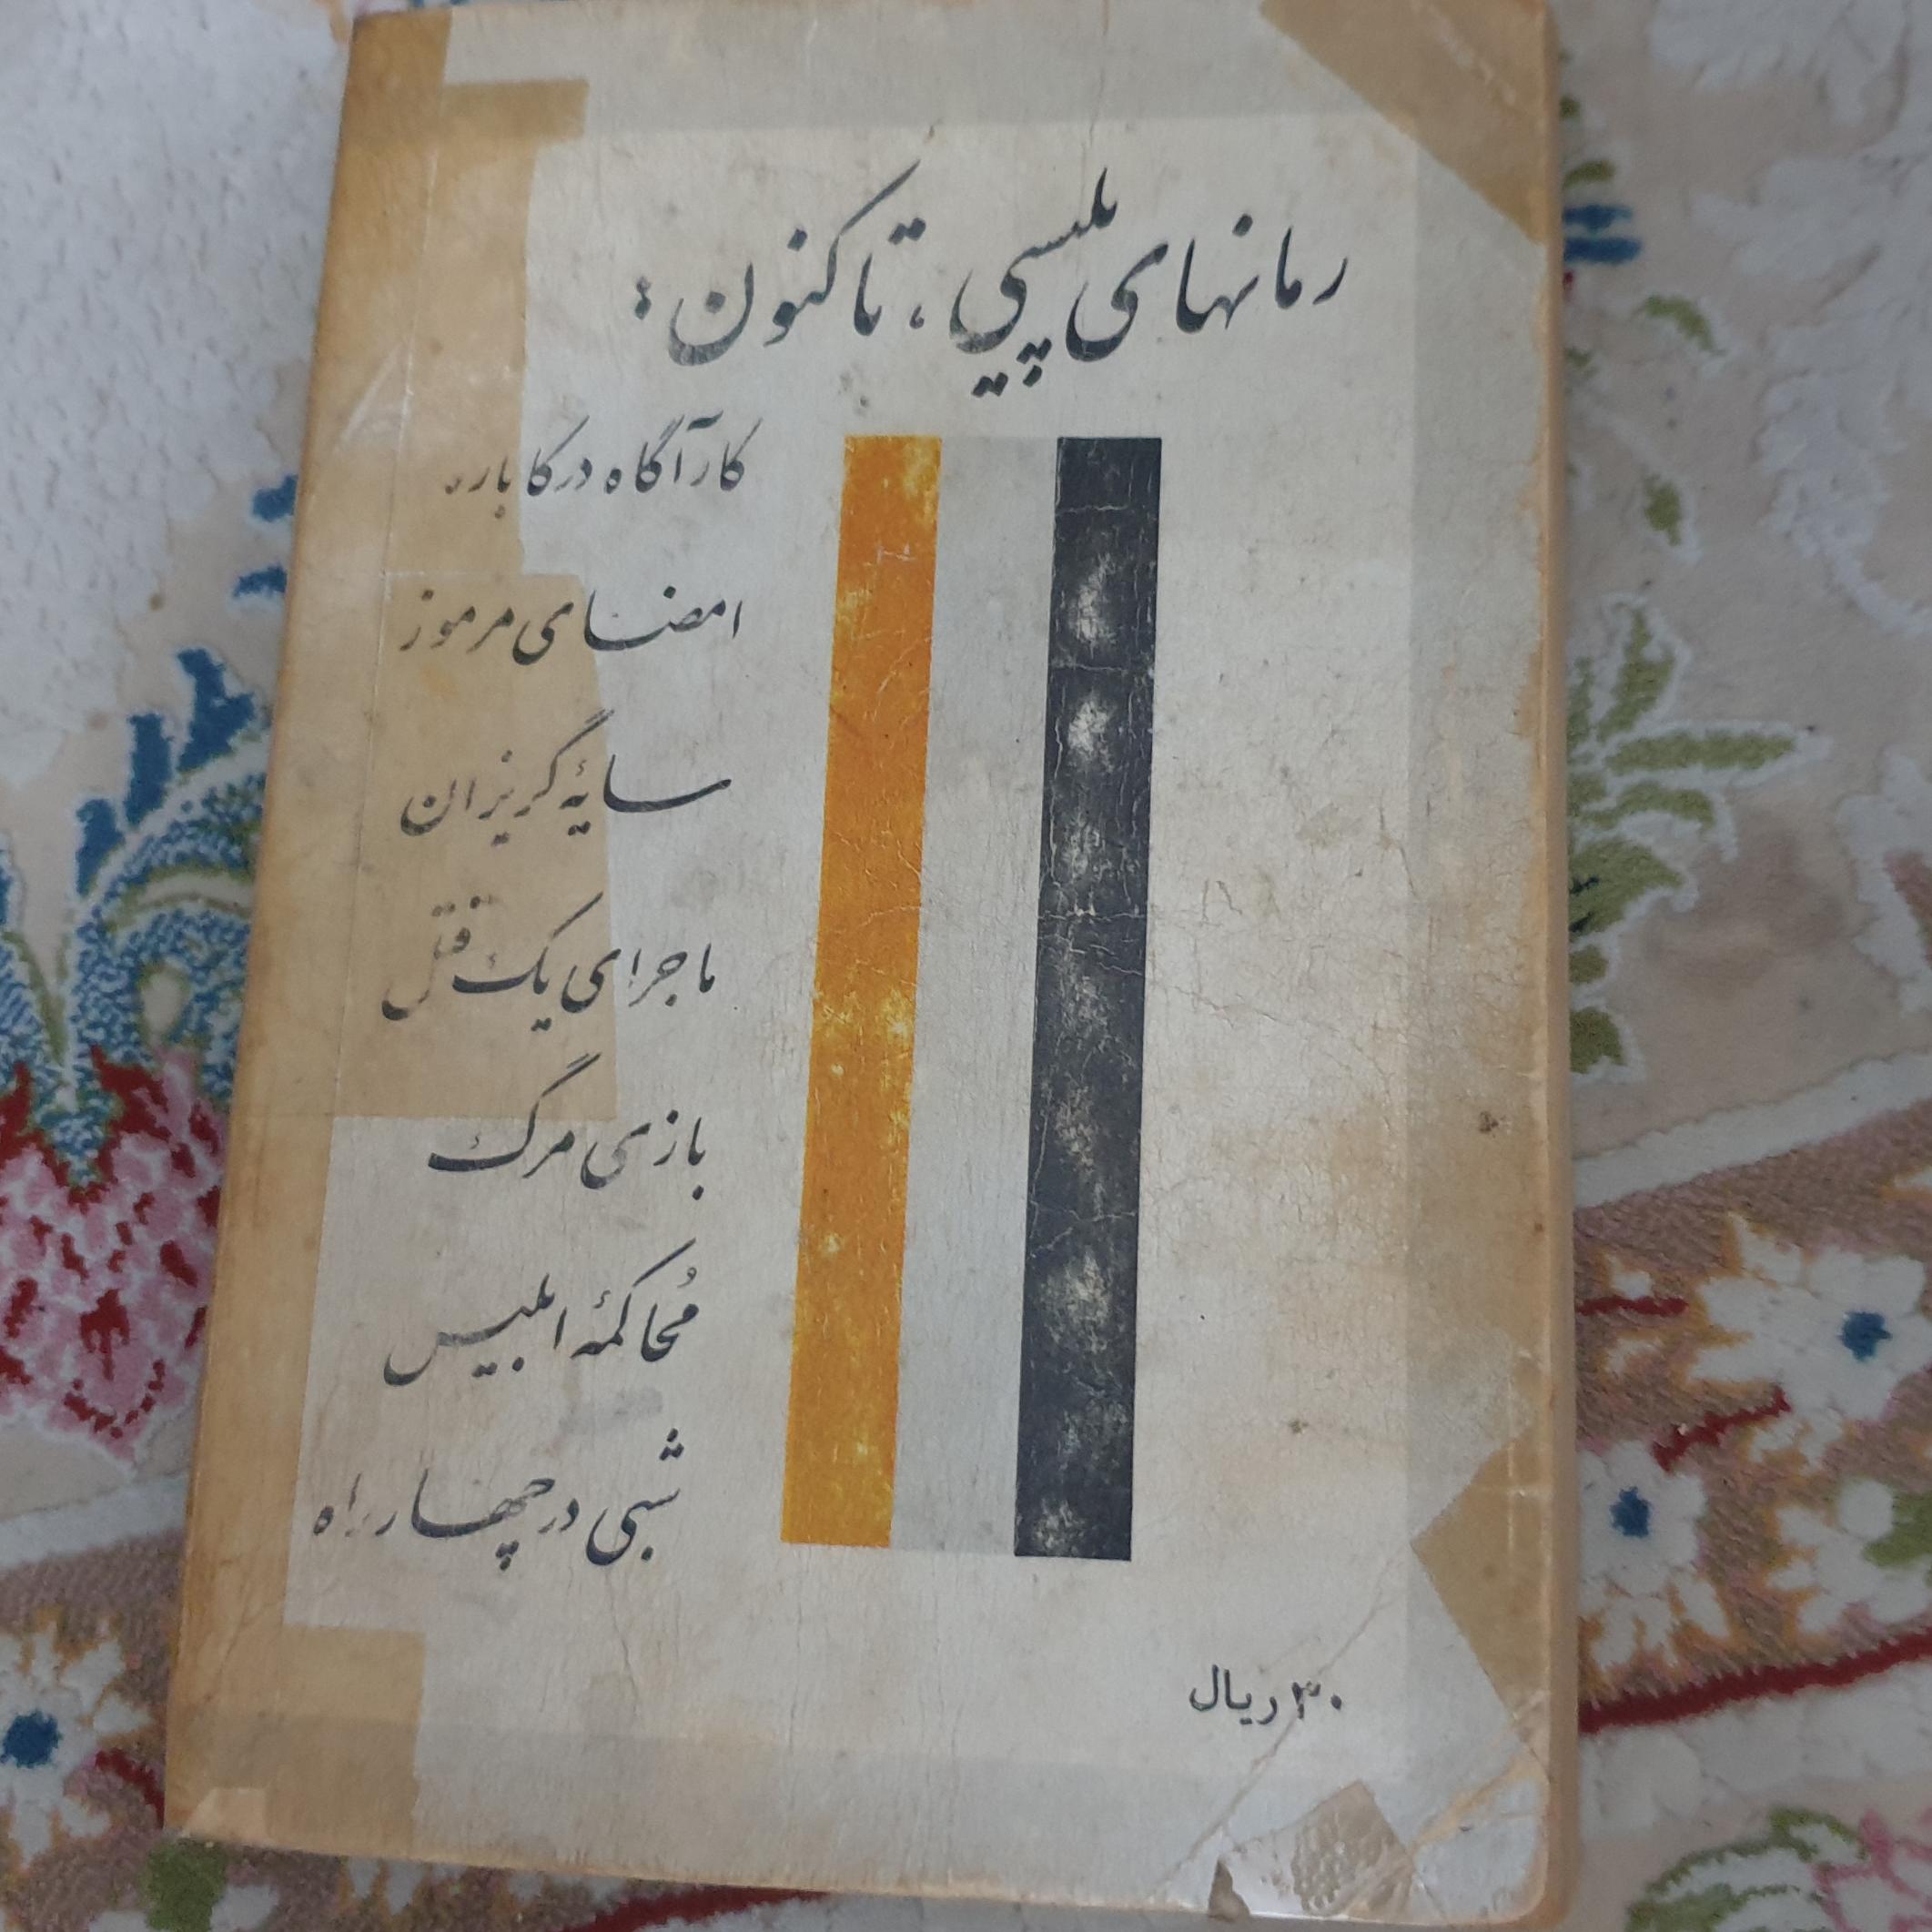 رمانهای پلیسی، تاکنون:
کارآگاه درکاباره
امضای مرموز
سایهٔ گریزان
ماجرای یک قتل
بازی مرگ
مُحاکمهٔ ابلیس
شبی در چهارراه
۳۰ ریال